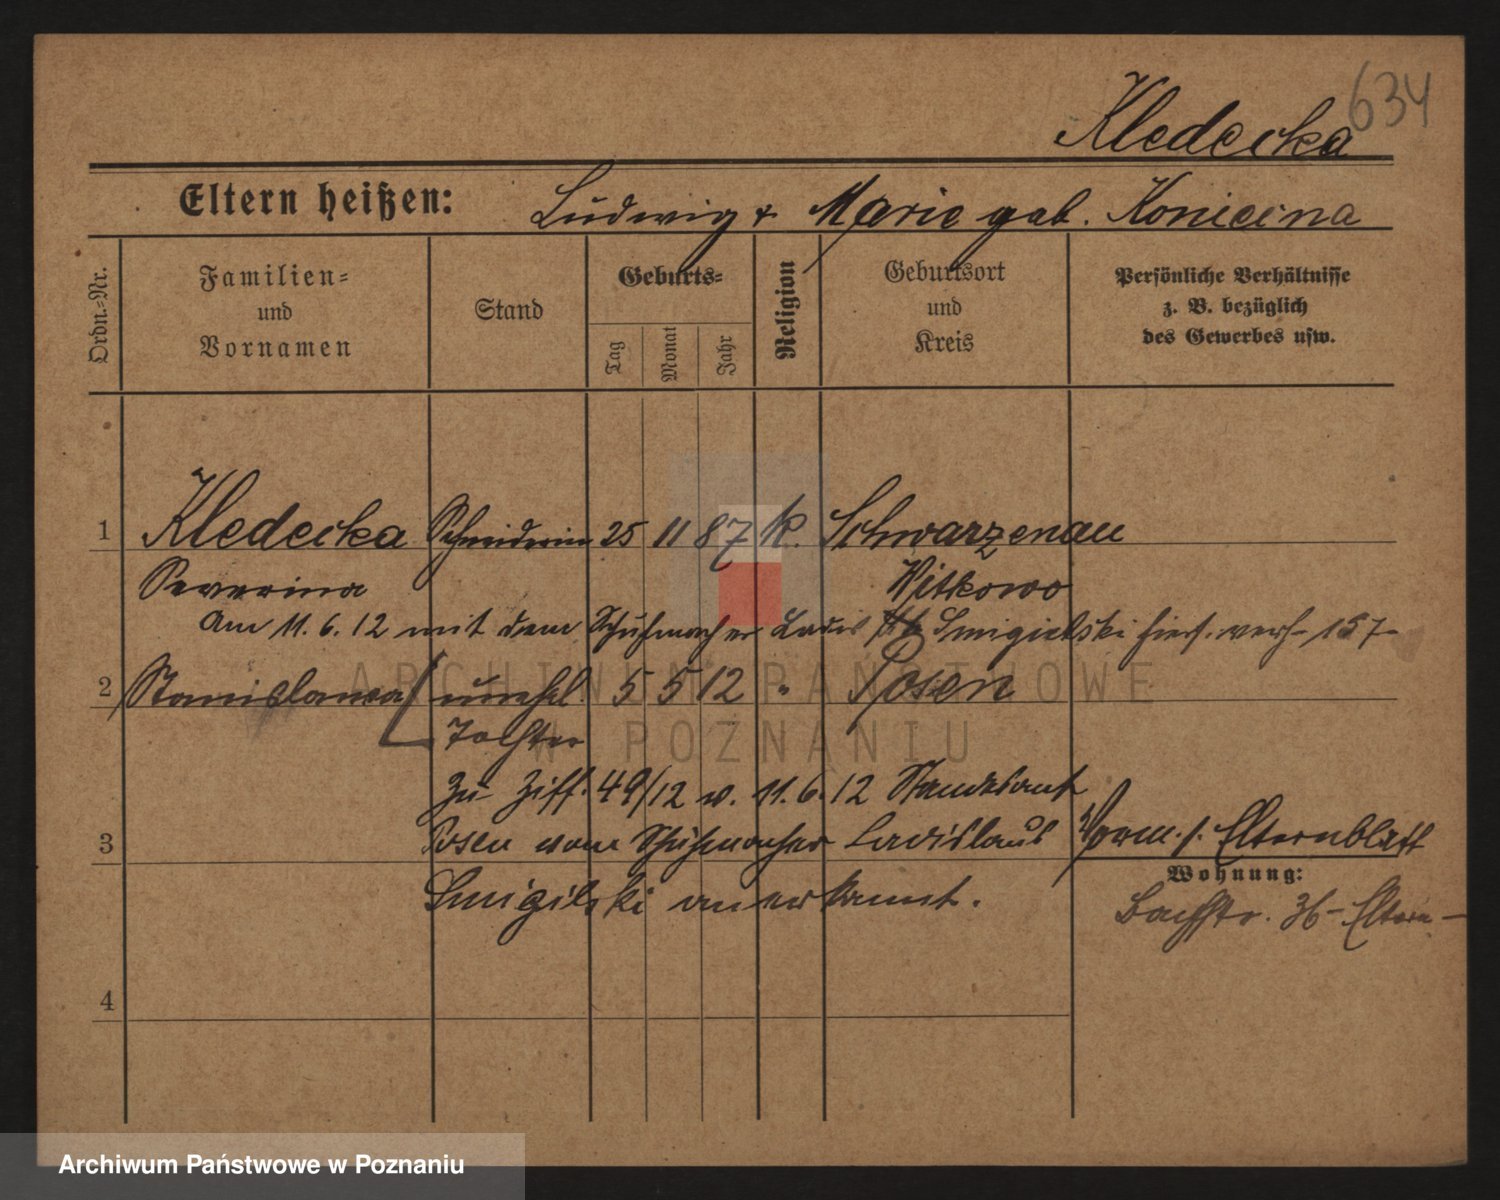 634
Kledecka
Eltern heißen: Ludwig & Marie geb. Koniecna
Ordn.-Nr.
Familien- und Vornamen
Stand
Geburts-
Tag
Monat
Jahr
Religion
Geburtsort und Kreis
Persönliche Verhältnisse z. B. bezüglich des Gewerbes usw.
1 Kledecka Schneiderin 25 11 87 k. Schwarzenau
Severina Witkowo
Am 11.6.12 mit dem Schuhmacher Ladis Smigielski hier verh. 157
2 Stanislawa unehel. 5 5 12 " Posen
Tochter
zu Ziff. 49/12 v. 11.6.12 Standesamt
3 Posen vom Schuhmacher Ladislaus
Vorm. s. Elternblatt
Wohnung:
Smigilski anerkannt.
Bachstr. 36 - Eltern -
4
ARCHIWUM PAŃSTWOWE
W POZNANIU
Archiwum Państwowe w Poznaniu